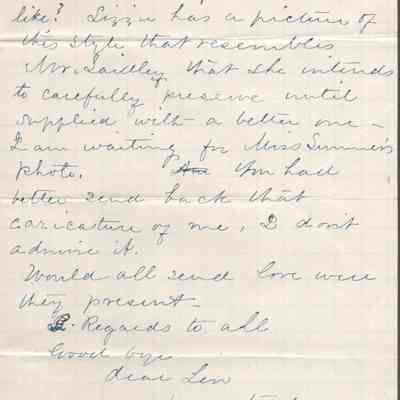 like? Lizzie has a picture of
this style that resembles
Mr. Laidley that she intends
to carefully preserve until
supplied with a better one -
I am waiting for Miss Sumner's
photo. You had
better send back that
caricature of me, I don't
admire it.
Would all send love were
they present -
Regards to all
Good bye
dear Len